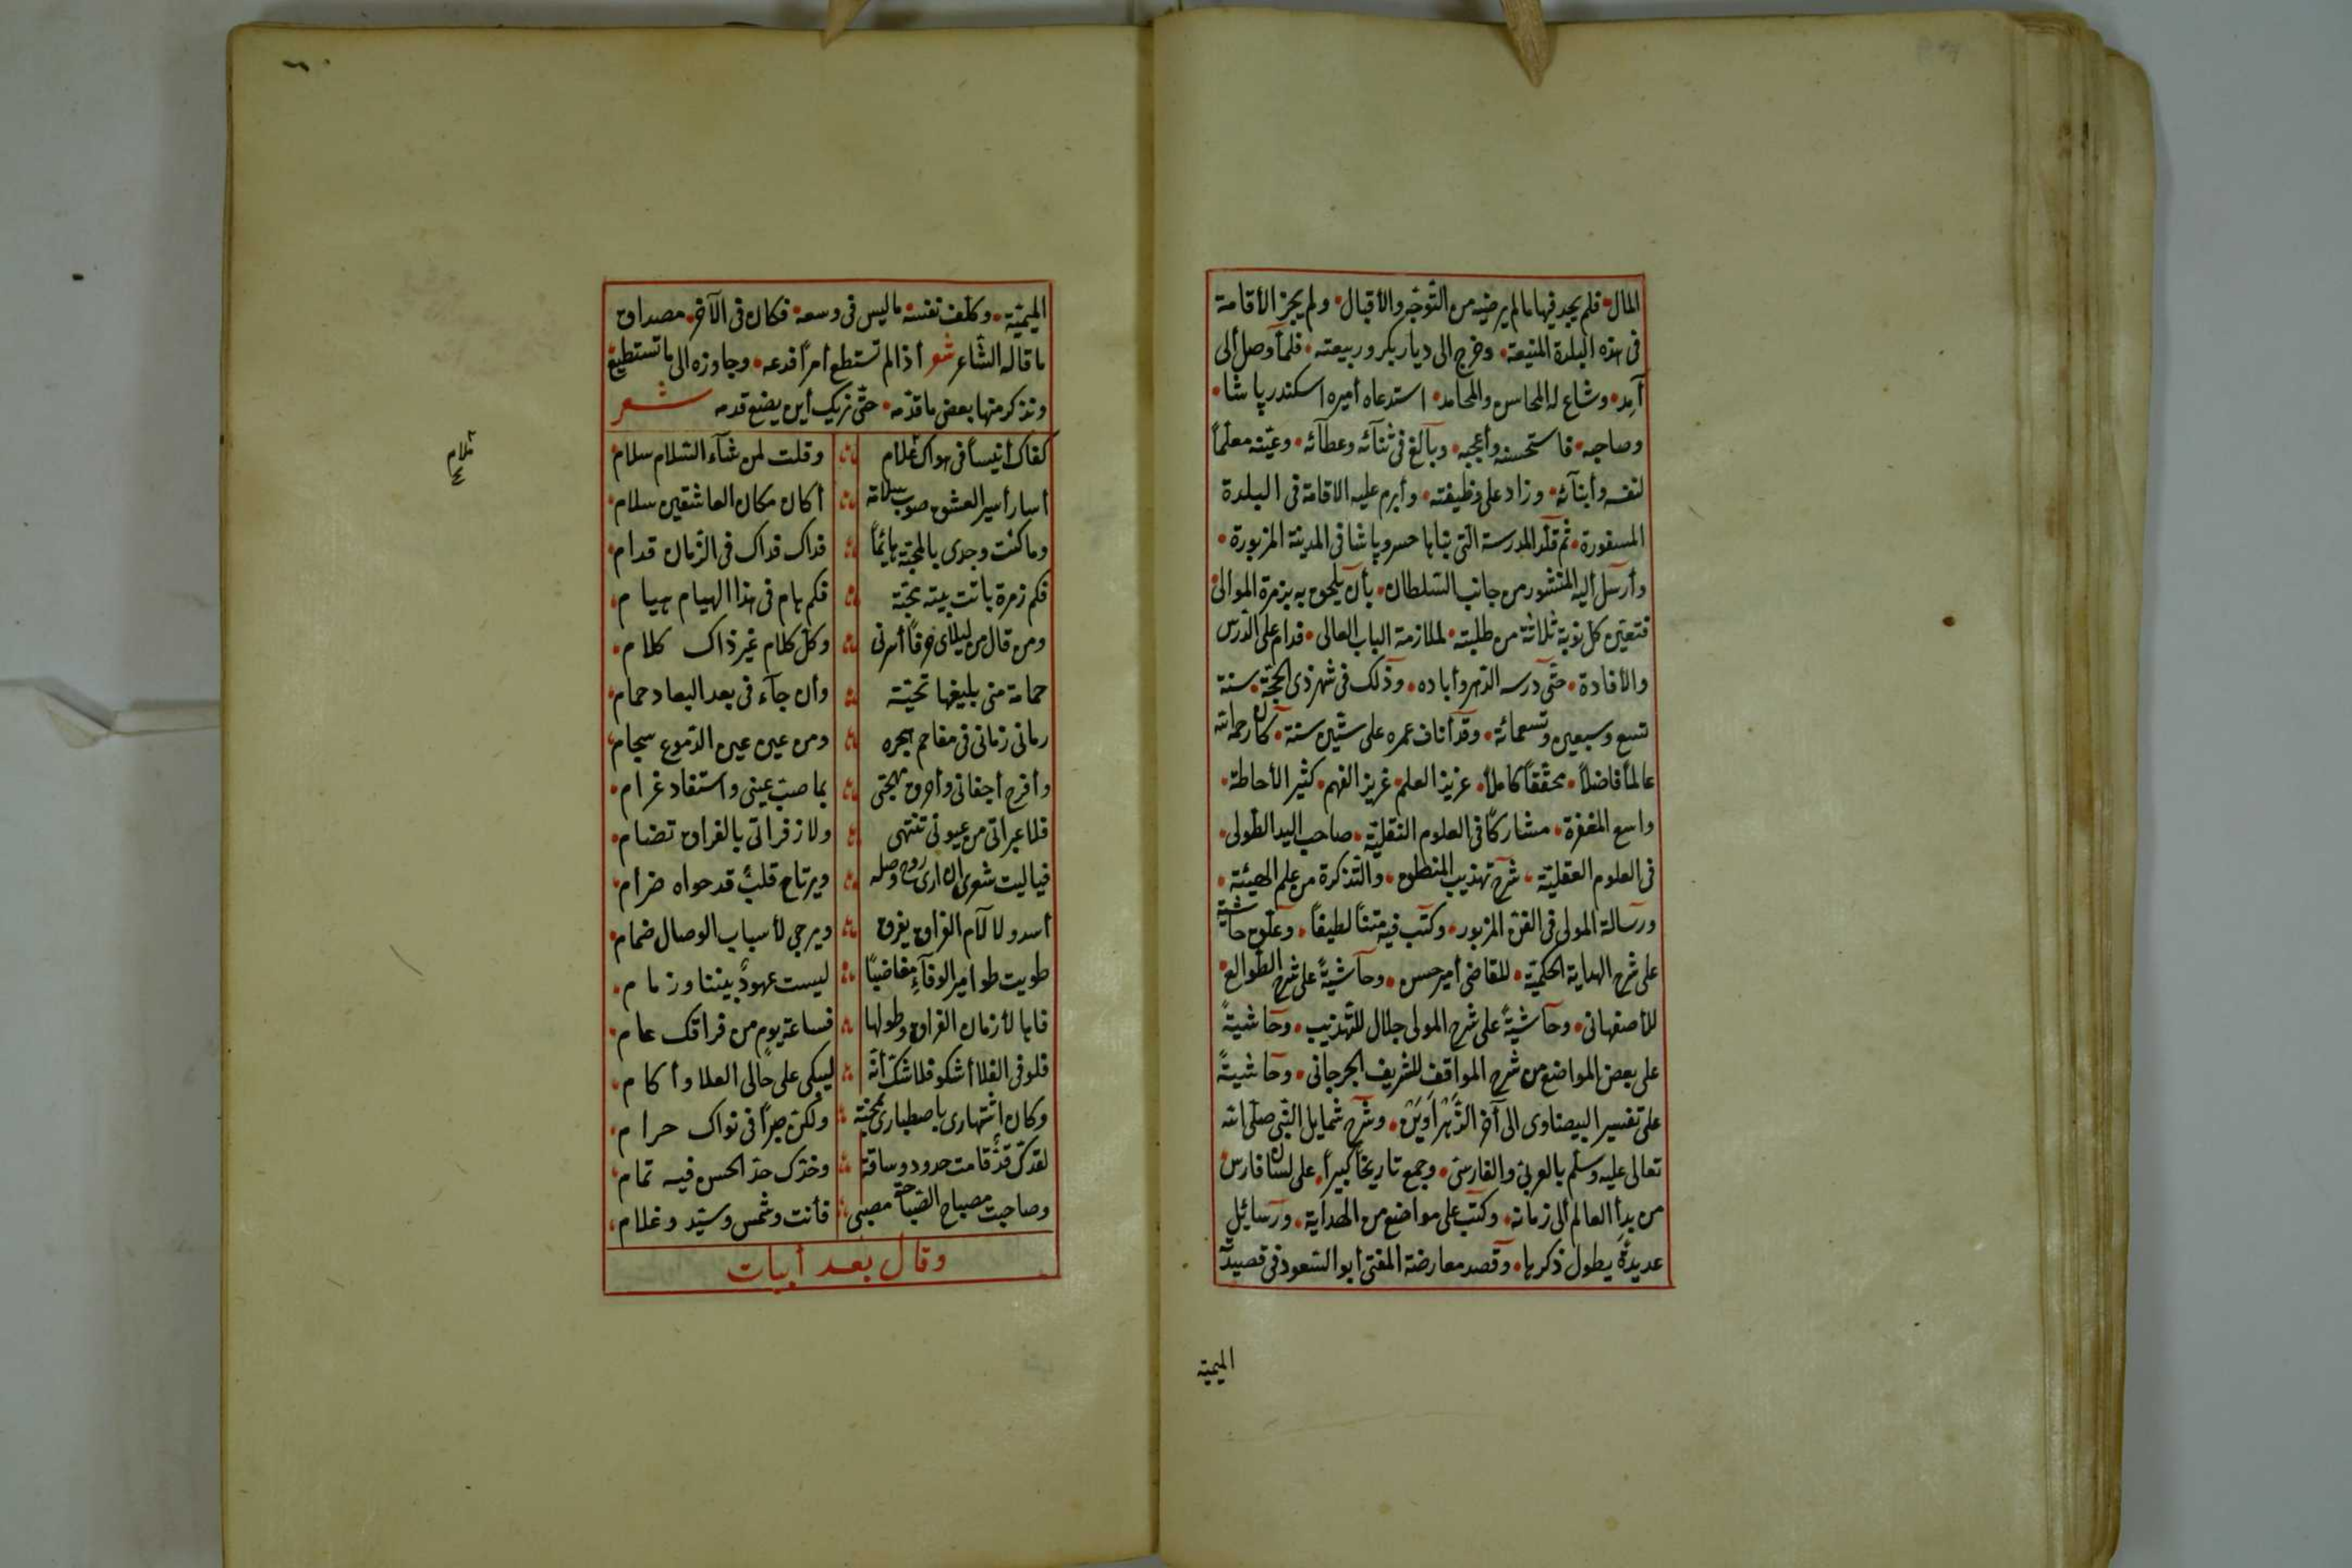 المال • فلم يجد فيها ما لم يرضيه من التّوجّه والأقبال • ولم يجز الأقامة
فى هذه البلدة المنيعة • وخرج الى ديار بكر وربيعته • فلمّا وصل ألى
آمد • وشاع له المحاسن والمحامد • استدعاه أميره اسكندر پاشا •
وصاحبه • فاستحسنه وأعجبه • وبالغ فى ثنآئه وعطآئه • وعيّنه معلّماً
لنفسه وأبنآئه • وزاد على وظيفته • وأبرم عليه الاقامة فى البلدة
المسفورة • ثم قلّد المدرسة التى بناها خسرو پاشا فى المدينة المزبورة •
وأرسل أليه المنشور من جانب السّلطان • بأن يلحق به بزمرة الموالى
فتعيّن كل نوبة ثلاثة من طلبته • لملازمة الباب العالى • فدام على الدّرس
والأفادة • حتّى درسه الدّهر وأباده • وذلك فى شهر ذى الحجّة • سنة
تسع وسبعين وتسعمائة • وقد أناف عمره على ستّين سنة • كان رحمه الله
عالماً فاضلاً • محقّقاً كاملاً • عزيز العلم • غريز الفهم • كثير الأحاطة •
واسع المغفرة • مشاركاً فى العلوم النّقليّة • صاحب اليد الطّولى •
فى العلوم العقليّة • شرح تهذيب المنطق • والتّذكرة من علم الهيئة •
ورسالة المولى فى الفنّ المزبور • وكتب فيه متناً لطيفاً • وعلّق حاشية
على شرح الهداية الحكميّة • للقاضى أمير حسن • وحآشيةً على شرح الطّوالع •
للأصفهانى • وحآشيةً على شرح المولى جلال للتّهذيب • وحاشيةً
على بعض المواضع من شرح المواقف للشريف الجرجانى • وحاشيةً
على تفسير البيضاوى الى آخر الزّهراوين • وشرح شمايل النّبى صلّى الله
تعالى عليه وسلّم بالعربى والفارسى • وجمع تاريخاً كبيراً • على لسان فارس •
من بدأ العالم ألى زمانه • وكتب على مواضع من الهداية • ورسائيل
عديدةً يطول ذكرها • وقصد معارضة المفتى أبو السّعود فى قصيدته
الميميّة
الميميّة • وكلّف نفسه ما ليس فى وسعه • فكان فى الآخر • مصداق
ما قاله الشّاعر شعر أذا لم تستطع أمراً فدعه • وجاوزه الى ما تستطيع
ونذكر منها بعض ما قدّمه • حتّى نريك أين يضع قدمه شعر
كفاك أنيساً فى هواك غلام وقلت لمن شآء السّلام سلام •
أسار أسير العشق صوب سلامة أكان مكان العاشقين سلام •
وما كنت وجدى بالمحبّة هائماً فداك فداك فى الزّمان قدام •
فكم زمرة باتت بيته بحبّه فكم هام فى هذا الهيام هيام •
ومن قال من ليلاى حرفاً أسرنى وكلّ كلام غير ذاك كلام •
حمامة منى بليغها تحيّة وأن جآء فى بعد البعاد حمام •
رمانى زمانى فى مفاحم هجره ومن عين عين الدّموع سجام •
وأقرح أجفانى وأحرق مهجتى بما صبّ عينى واستفاد غرام •
فلا عبراتى من عيونى تنتهى ولا زفراتى بالفراق تضام •
فيا ليت شعرى ان ارى روح وصله ويرتاح قلبٌ قد حواه ضرام •
أسد ولا لآلام الفراق يفرق ويرجى لأسباب الوصال ضمام •
طويت طوامير الوفآء مغاضباً ليست عهودٌ بيننا وزمام •
فاها لأزمان الفراق وطولها فساعة يوم من فراقك عام •
فلو فى الفلا أشكو فلا شكّ أنّه ليبكى على حالى العلا وأكام •
وكان اشتهارى باصطبارى محنة ولكنّ صبراً فى نواك حرام •
لقدك قدٌّ قامت حدود وساقة وخدّك حدّ الحسن فيه تمام •
وصاحبت مصباح الصّباحة مصبى فأنت وشمس وسيّد وغلام •
وقال بعد أبيات